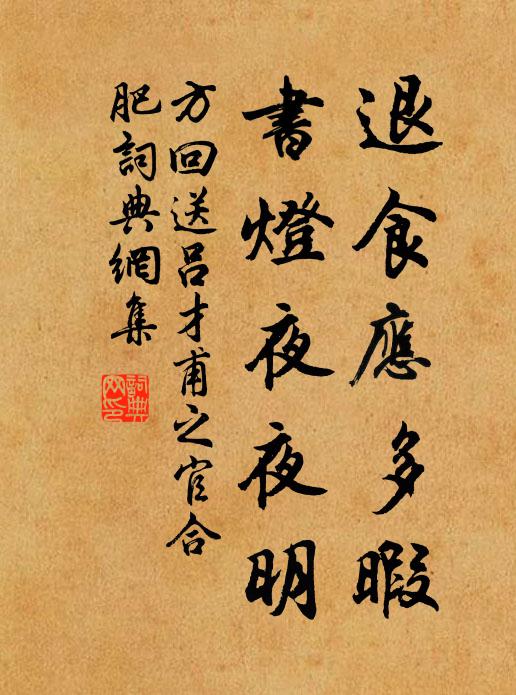 退食應多暇
書燈夜夜明
方回送呂才甫之官合
肥詞典網集
詞典
網印